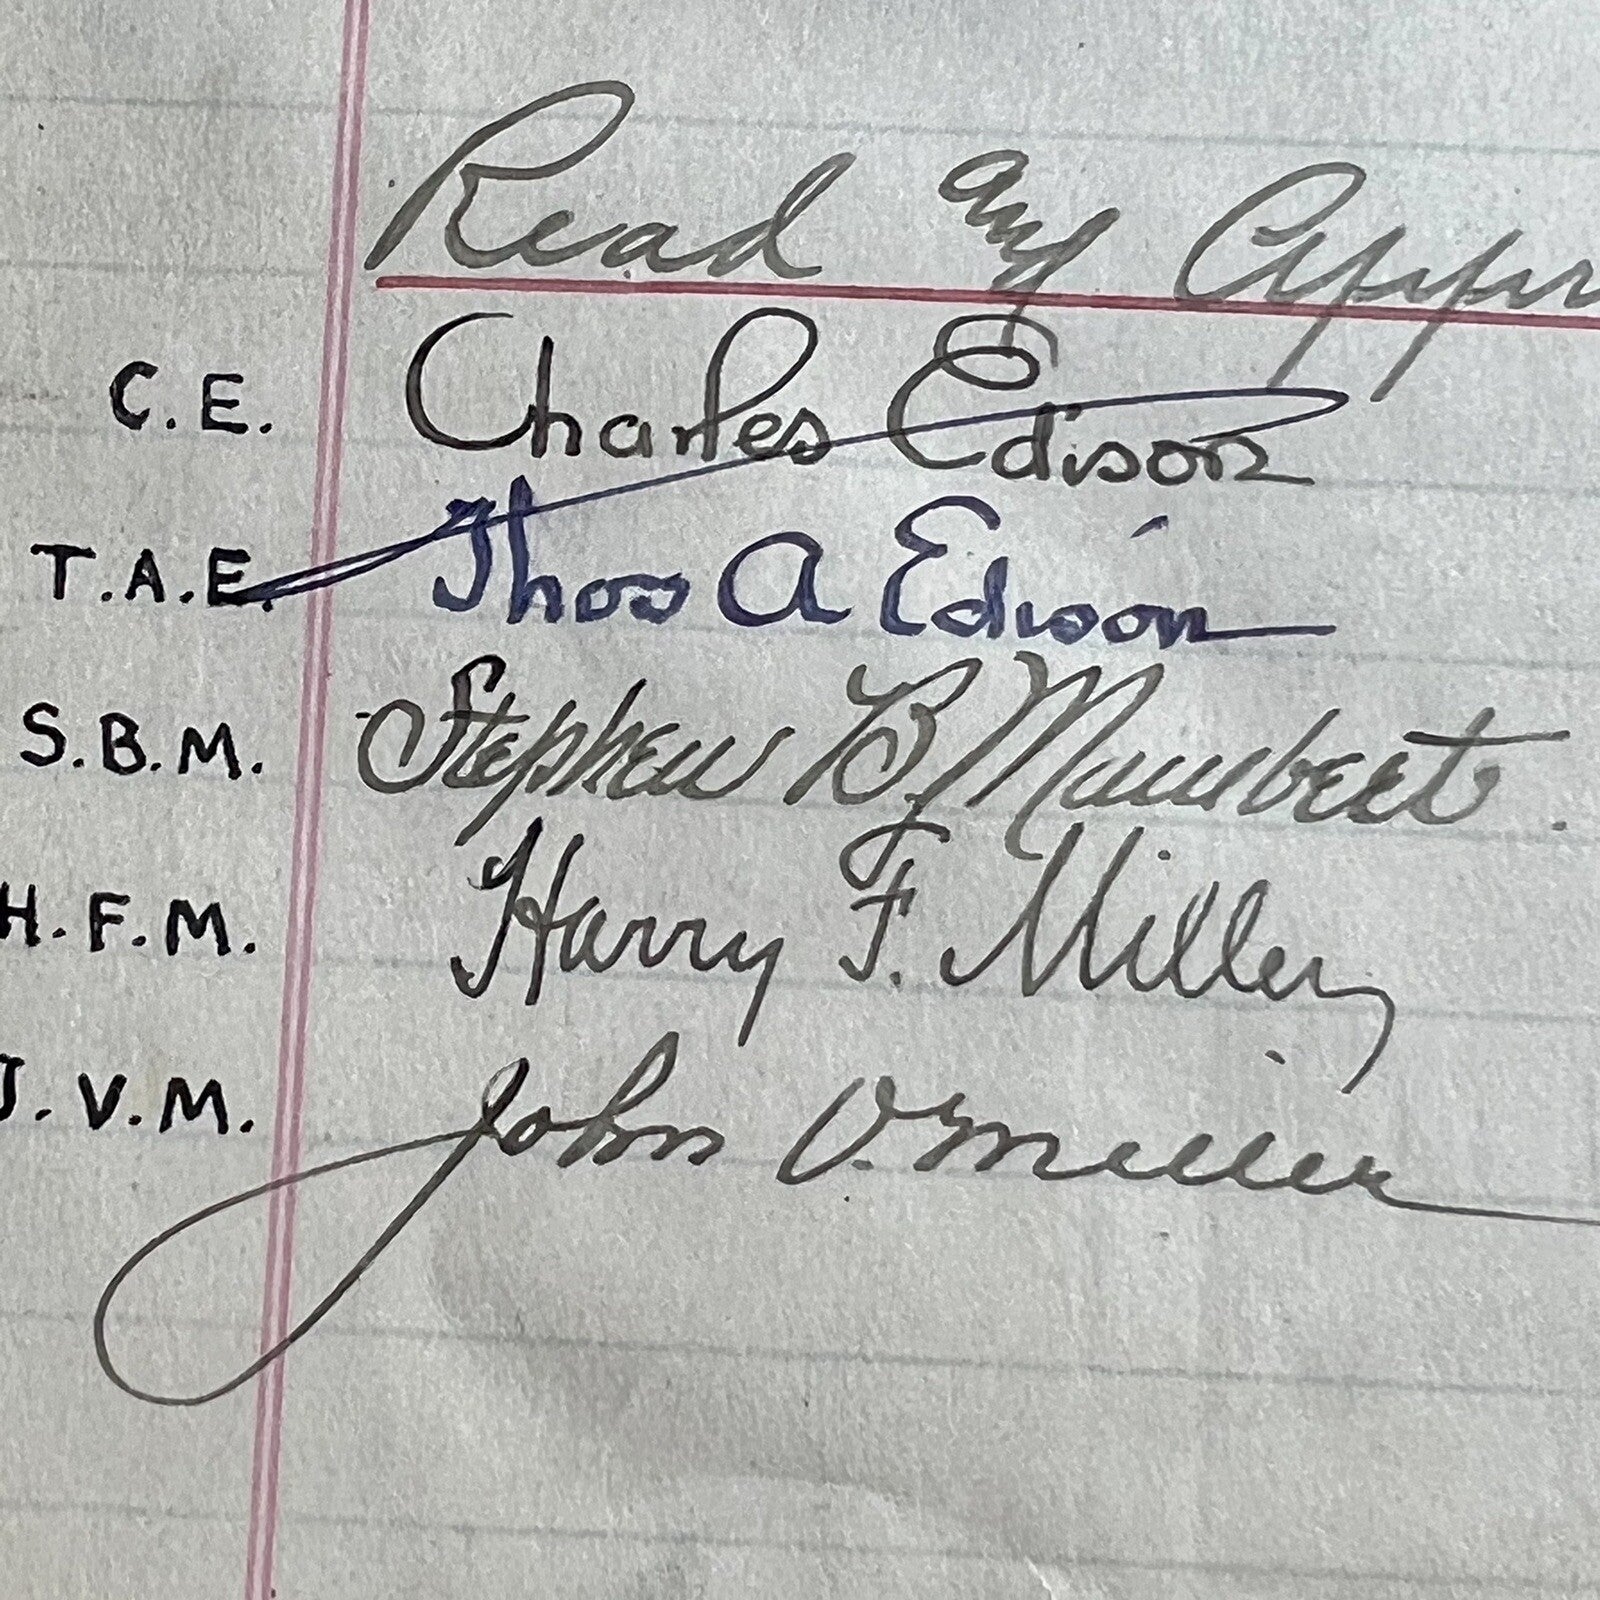 Read and Appr
C.E. Charles Edison
T.A.E. Thos A Edison
S.B.M. Stephen B. Mambert.
H.F.M. Harry F. Miller
J.V.M. John V. Miller